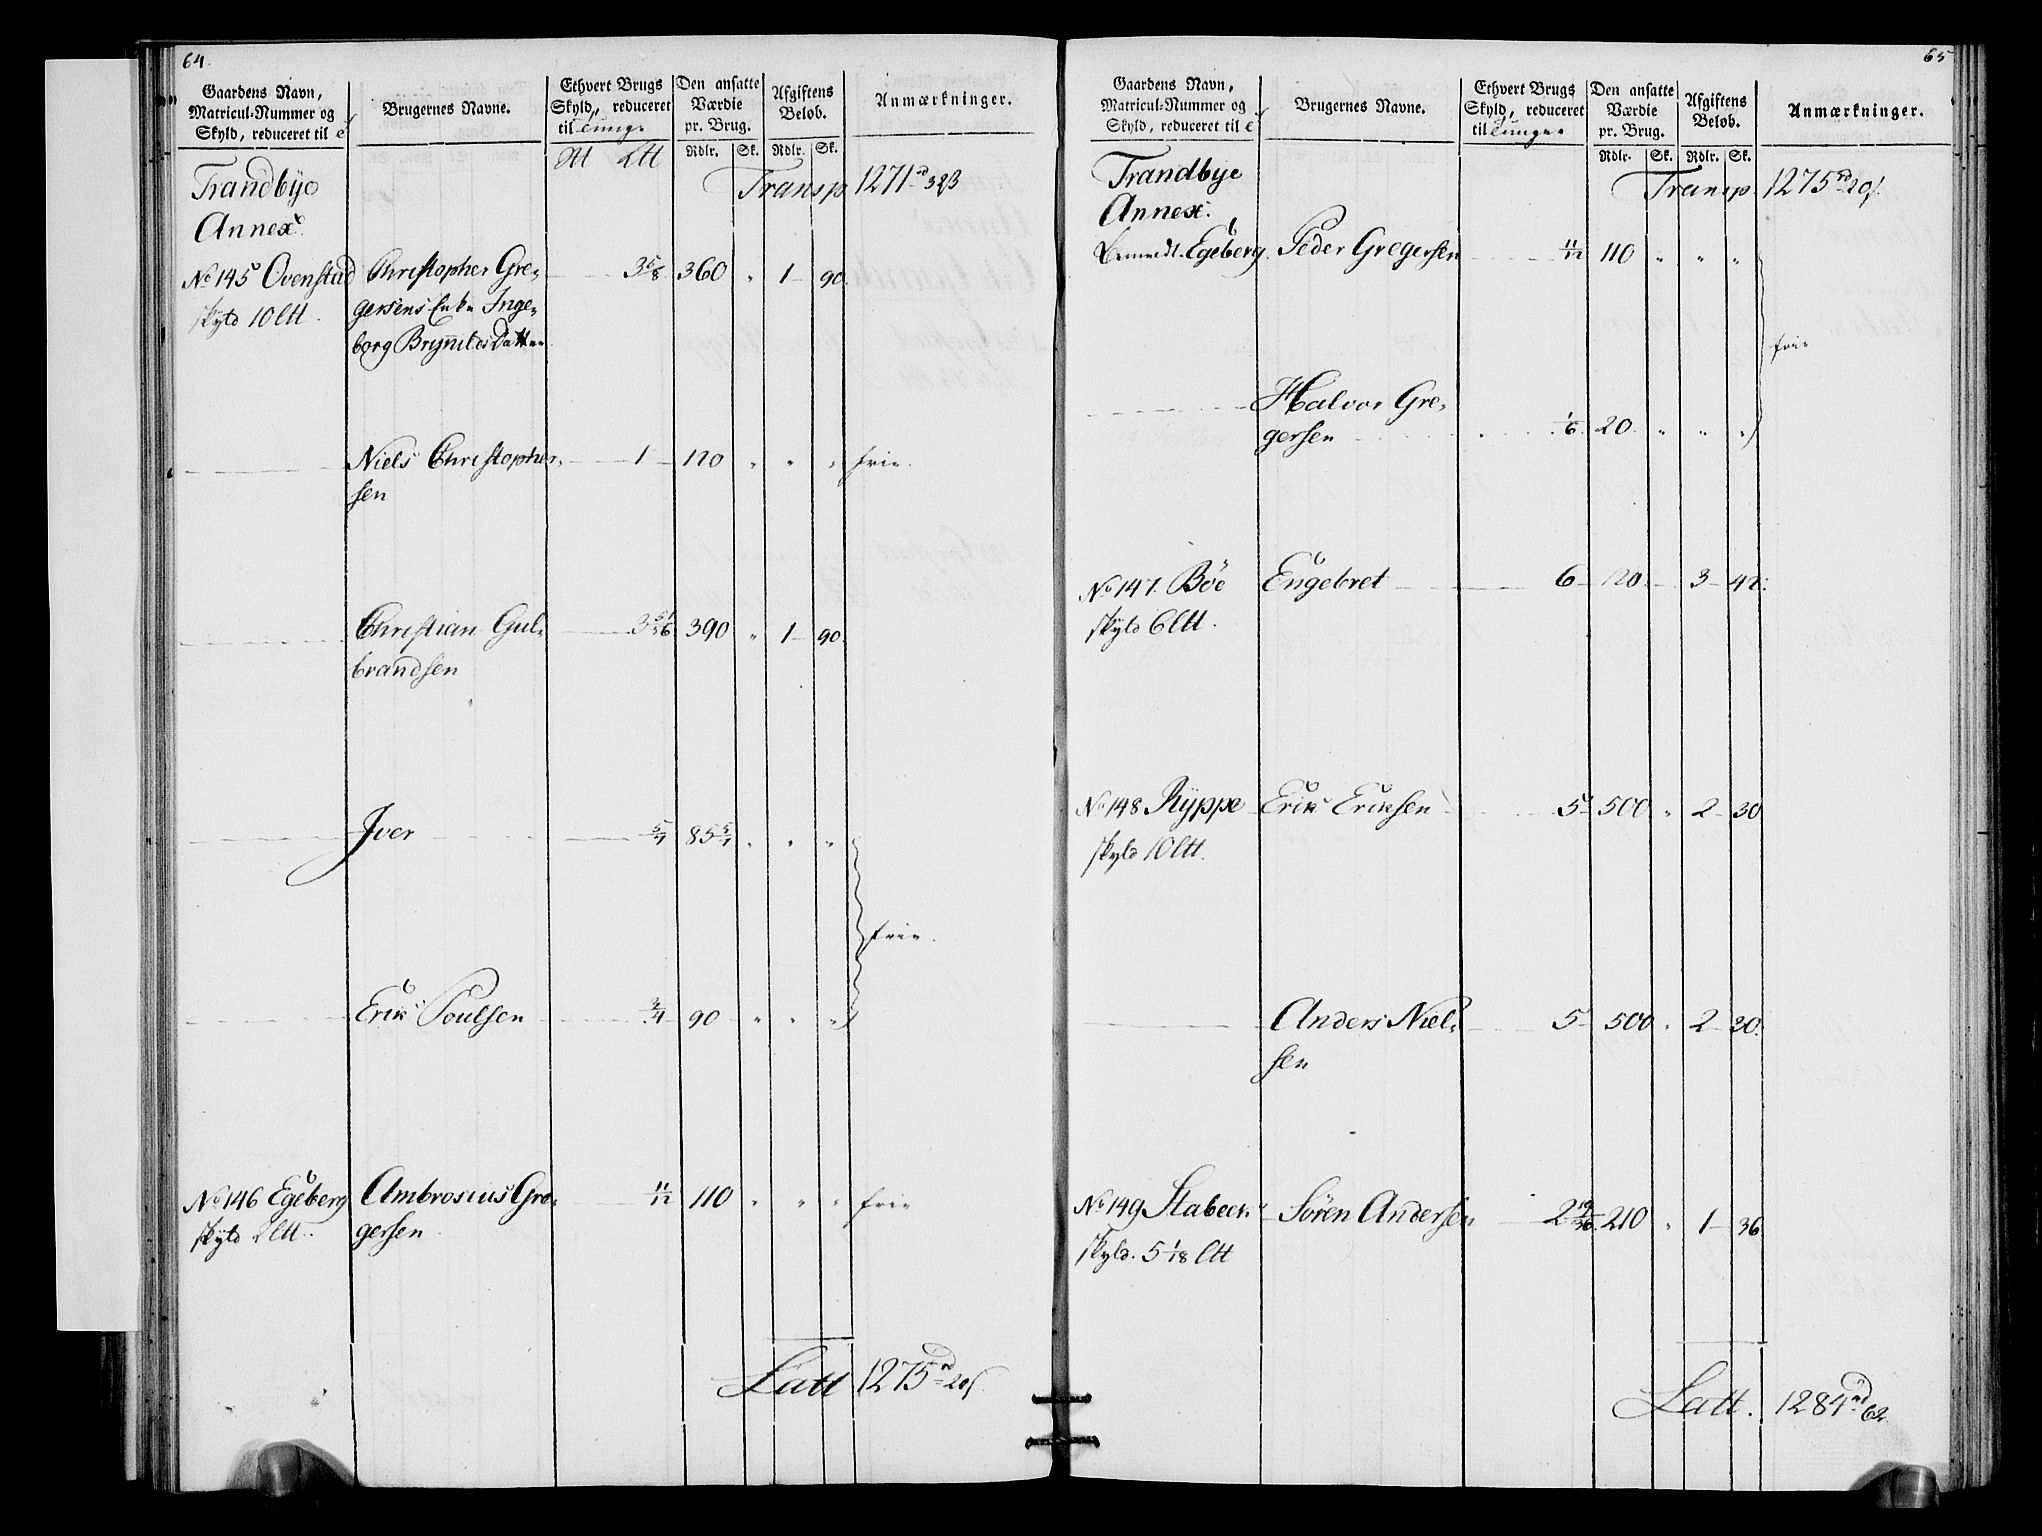 64.
Gaardens Navn,
Matricul-Nummer og
Skyld, reduceret til
Brugernes Navne.
Ethvert Brugs
Skyld, reduceret
til Tunge
Den ansatte
Værdie
pr. Brug.
Afgiftens
Beløb.
Anmærkninger.
Rdlr. Sk. Rdlr. Sk.
Trandbye
Annex
Transp 1271 rd 32 β
No 145 Ovenstad Christopher Gre- 3 5/8 360 " 1 90.
skyld 10 Ltt. gersens Enke Inge-
borg Brynilds Datter
Niels Christopher- 1 120 " " " frie.
sen
Christian Gul- 390 " 1 90.
brandsen
Iver 5/7 85 5/7 " " "
frie.
Erik Poulsen 3/4 90 " " "
No 146 Egeberg Ambrosius Gre- 11/12 110 " " " frie
skyld 2 Ltt. gersen
Latt 1275 rd 20 s.
65
Gaardens Navn,
Matricul-Nummer og
Skyld, reduceret til
Brugernes Navne.
Ethvert Brugs
Skyld, reduceret
til Tunge
Den ansatte
Værdie
pr. Brug.
Afgiftens
Beløb.
Anmærkninger.
Rdlr. Sk. Rdlr. Sk.
Trandbye
Annex.
Transp. 1275 rd 20 s.
Egeberg. Peder Gregersen 11/12 110 " " "
frie
Halvor Gre-
gersen 1/6 20 " " "
No 147. Böe Engebret 6 3 42.
skyld 6 Ltt.
No 148 Ryppe Erik Eriksen 5 500 " 2 30
skyld 10 Ltt.
Anders Niel- 5 500 " 2 30.
sen
No 149 Stabeck Sören Andersen 2 19/36 210 " 1 36
skyld. 5 1/18 Ltt
Latt. 1284 rd 62.